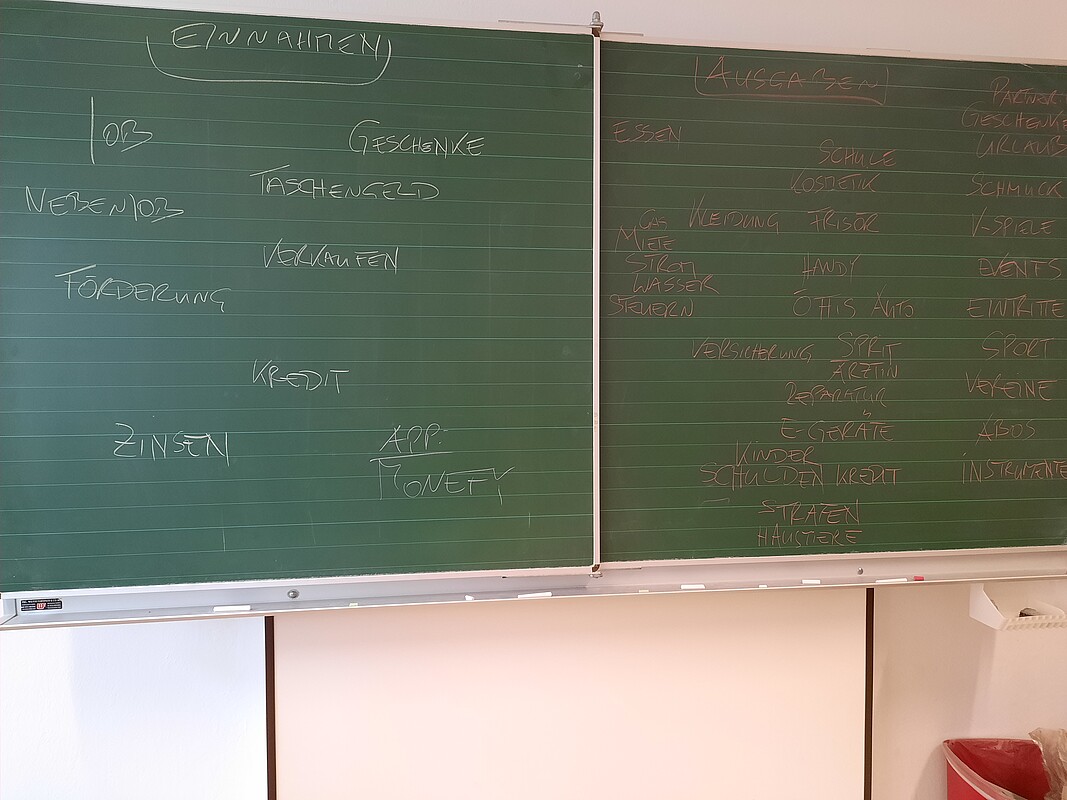 EINNAHMEN
JOB
GESCHENKE
TASCHENGELD
NEBENJOB
VERKAUFEN
FÖRDERUNG
KREDIT
ZINSEN
APP:
MONEFY
AUSGABEN
ESSEN
SCHULE
KOSMETIK
KLEIDUNG FRISÖR
MIETE
STROM
WASSER
STEUERN
HANDY
ÖFFIS AUTO
VERSICHERUNG SPRIT
ÄRZTIN
REPARATUR
E-GERÄTE
KINDER
SCHULDEN KREDIT
STRAFEN
HAUSTIERE
PARTNER
GESCHENKE
URLAUB
SCHMUCK
V-SPIELE
EVENTS
EINTRITTE
SPORT
VEREINE
ABOS
INSTRUMENTE